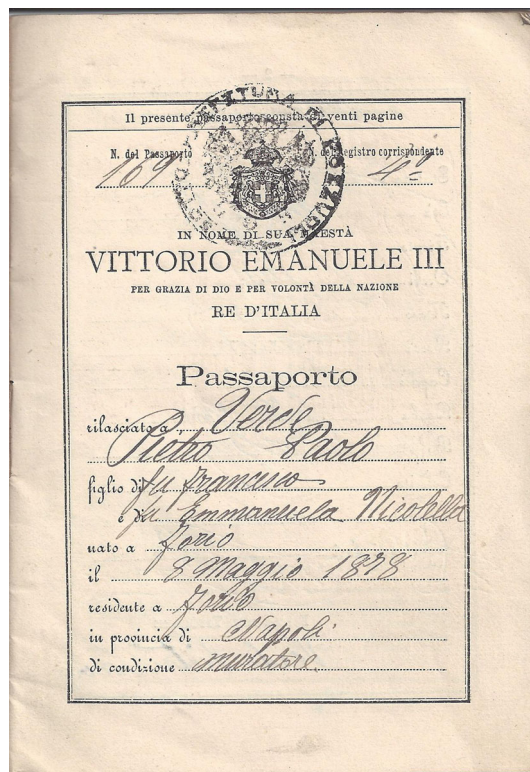 Il presente passaporto consta di venti pagine
N. del Passaporto N. del Registro corrispondente
169 4º
SOTTOPREFETTURA DI POZZUOLI
IN NOME DI SUA MAESTÀ
VITTORIO EMANUELE III
PER GRAZIA DI DIO E PER VOLONTÀ DELLA NAZIONE
RE D'ITALIA
Passaporto
rilasciato a Verde
Pietro Paolo
figlio di fu Francesco
e di fu Emmanuela Nicolella
nato a Forio
il 8 Maggio 1878
residente a Forio
in provincia di Napoli
di condizione muratore